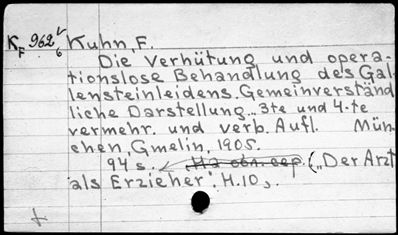 K F 962 v/6 Kuhn, F.
Die Verhütung und opera-
tionslose Behandlung des Gal-
lensteinleidens. Gemeinverständ
liche Darstellung.. 3te und 4-te
vermehr. und verb. Aufl. Mün-
chen, Gmelin, 1905.
94 s. („Der Arzt
als Erzieher". H. 10).